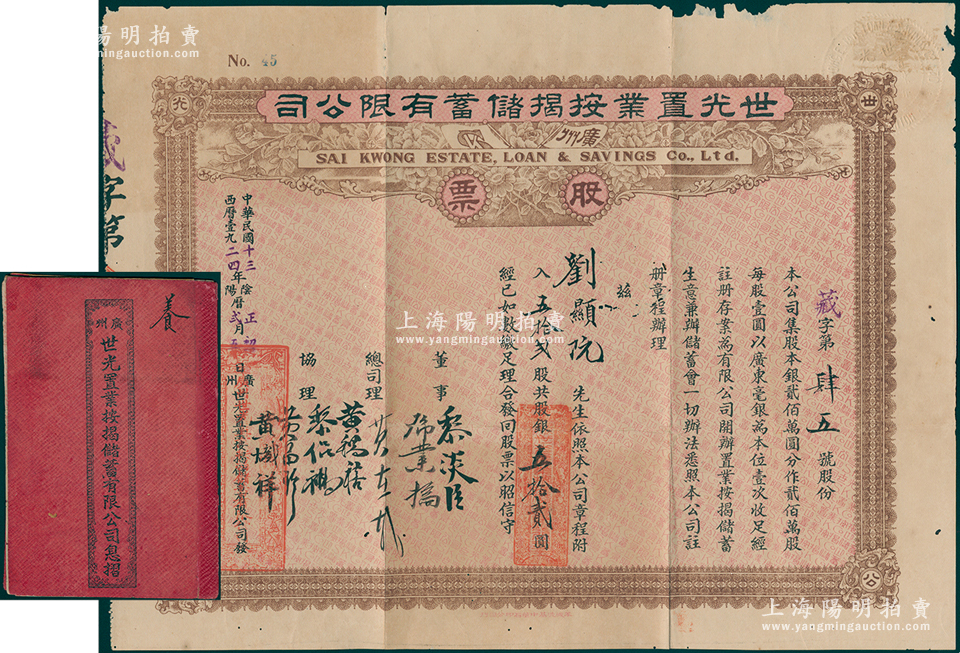 No. 45
世光置業按揭儲蓄有限公司
廣州
SAI KWONG ESTATE, LOAN & SAVINGS Co., Ltd.
股票
世
光
公
藏字第肆五號股份
本公司集股本銀貳佰萬圓分作貳佰萬股
每股壹圓以廣東毫銀為本位壹次收足經
註册存案為有限公司開辦置業按揭儲蓄
生意兼辦儲蓄會一切辦法悉照本公司註
册章程辦理
茲
劉顯阮先生依照本公司章程附
入五拾貳股共股銀五拾貳圓
經已如數繳足理合發回股票以昭信守
董事
黎淡臣
總司理
協理
中華民國十三年陰曆正月
西曆壹九二四年陽曆貳月
日廣州世光置業按揭儲蓄有限公司發
藏字第
養
廣州
世光置業按揭儲蓄有限公司息摺
上海陽明拍賣
www.yangmingauction.com
上海陽明拍賣
www.yangmingauction.com
陽明拍賣
yangmingauction.com